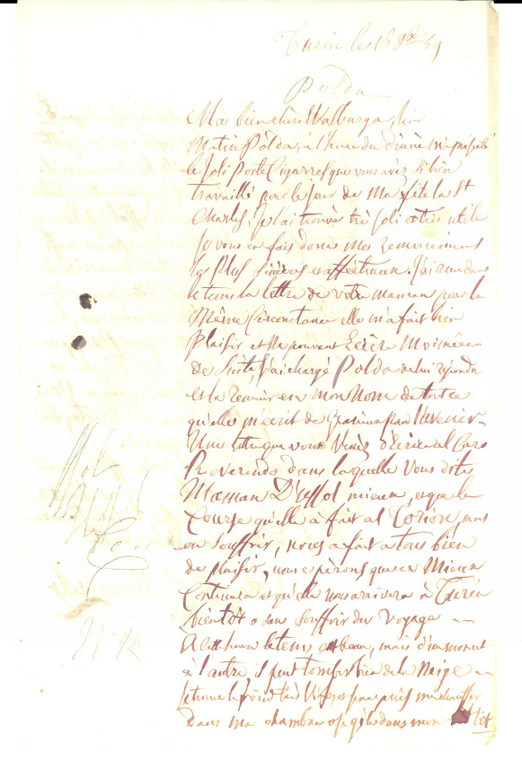 Turin le 16 9bre 51
Polda
Ma bien chère Walburga, hier
Matin Polda, à l'heure du déjeuné m'a présenté
le Joli Porte Cigarres que vous avez si bien
travaillé pour le Jour de Ma fête la St
Charles, Je l'ai trouvé très joli et très utile
Je vous en fais donc mes Remerciments
les Plus sincères et affectueux. J'ai reçu dans
le tems la lettre de votre maman pour la
Même Circonstance elle m'a fait bien
Plaisir et Ne pouvant Ecrire Moi même
de Suite, J'ai chargé Polda de lui répondre
et la remercier en mon Nom de tout ce
qu'elle m'écrit de Gracieux pour l'avenir.
Une lettre que vous Venez d'Ecrire al Caro
Reverendo dans laquelle Vous dites
Maman D'Ussol mieux, et que la
Course qu'elle à fait al Torion, sans
en Souffrir, nous a fait a tous bien
de plaisir, nous espérons que ce Mieux
Continuera et qu'elle nous arrivera à Turin
bientôt et sans Souffrir du Voyage —
A cette heure le tems est beau, mais d'un moment
à l'autre, il peut tomber bien de la Neige —
Je trouve le froid très Vif et je ne puis me rechauffer
Dans ma chambre et que dans mon lit